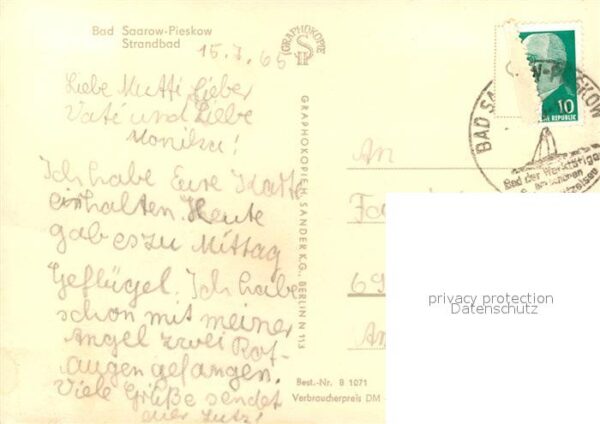 Bad Saarow-Pieskow
Strandbad
15.7.65
Liebe Mutti lieber
Vati und liebe
Monika!
Ich habe Eure Karte
erhalten. Heute
gab es zu Mittag
Geflügel. Ich habe
schon mit meiner
Angel zwei Rot-
augen gefangen.
Viele Grüße sendet
euer Lutz!
GRAPHOKOPIE
GRAPHOKOPIE H. SANDER K.G., BERLIN N 113
Best.-Nr. B 1071
Verbraucherpreis DM
10
REPUBLIK
BAD SAAROW-PIESKOW
Bad der Werktätigen
am schönen
An
69
privacy protection
Datenschutz